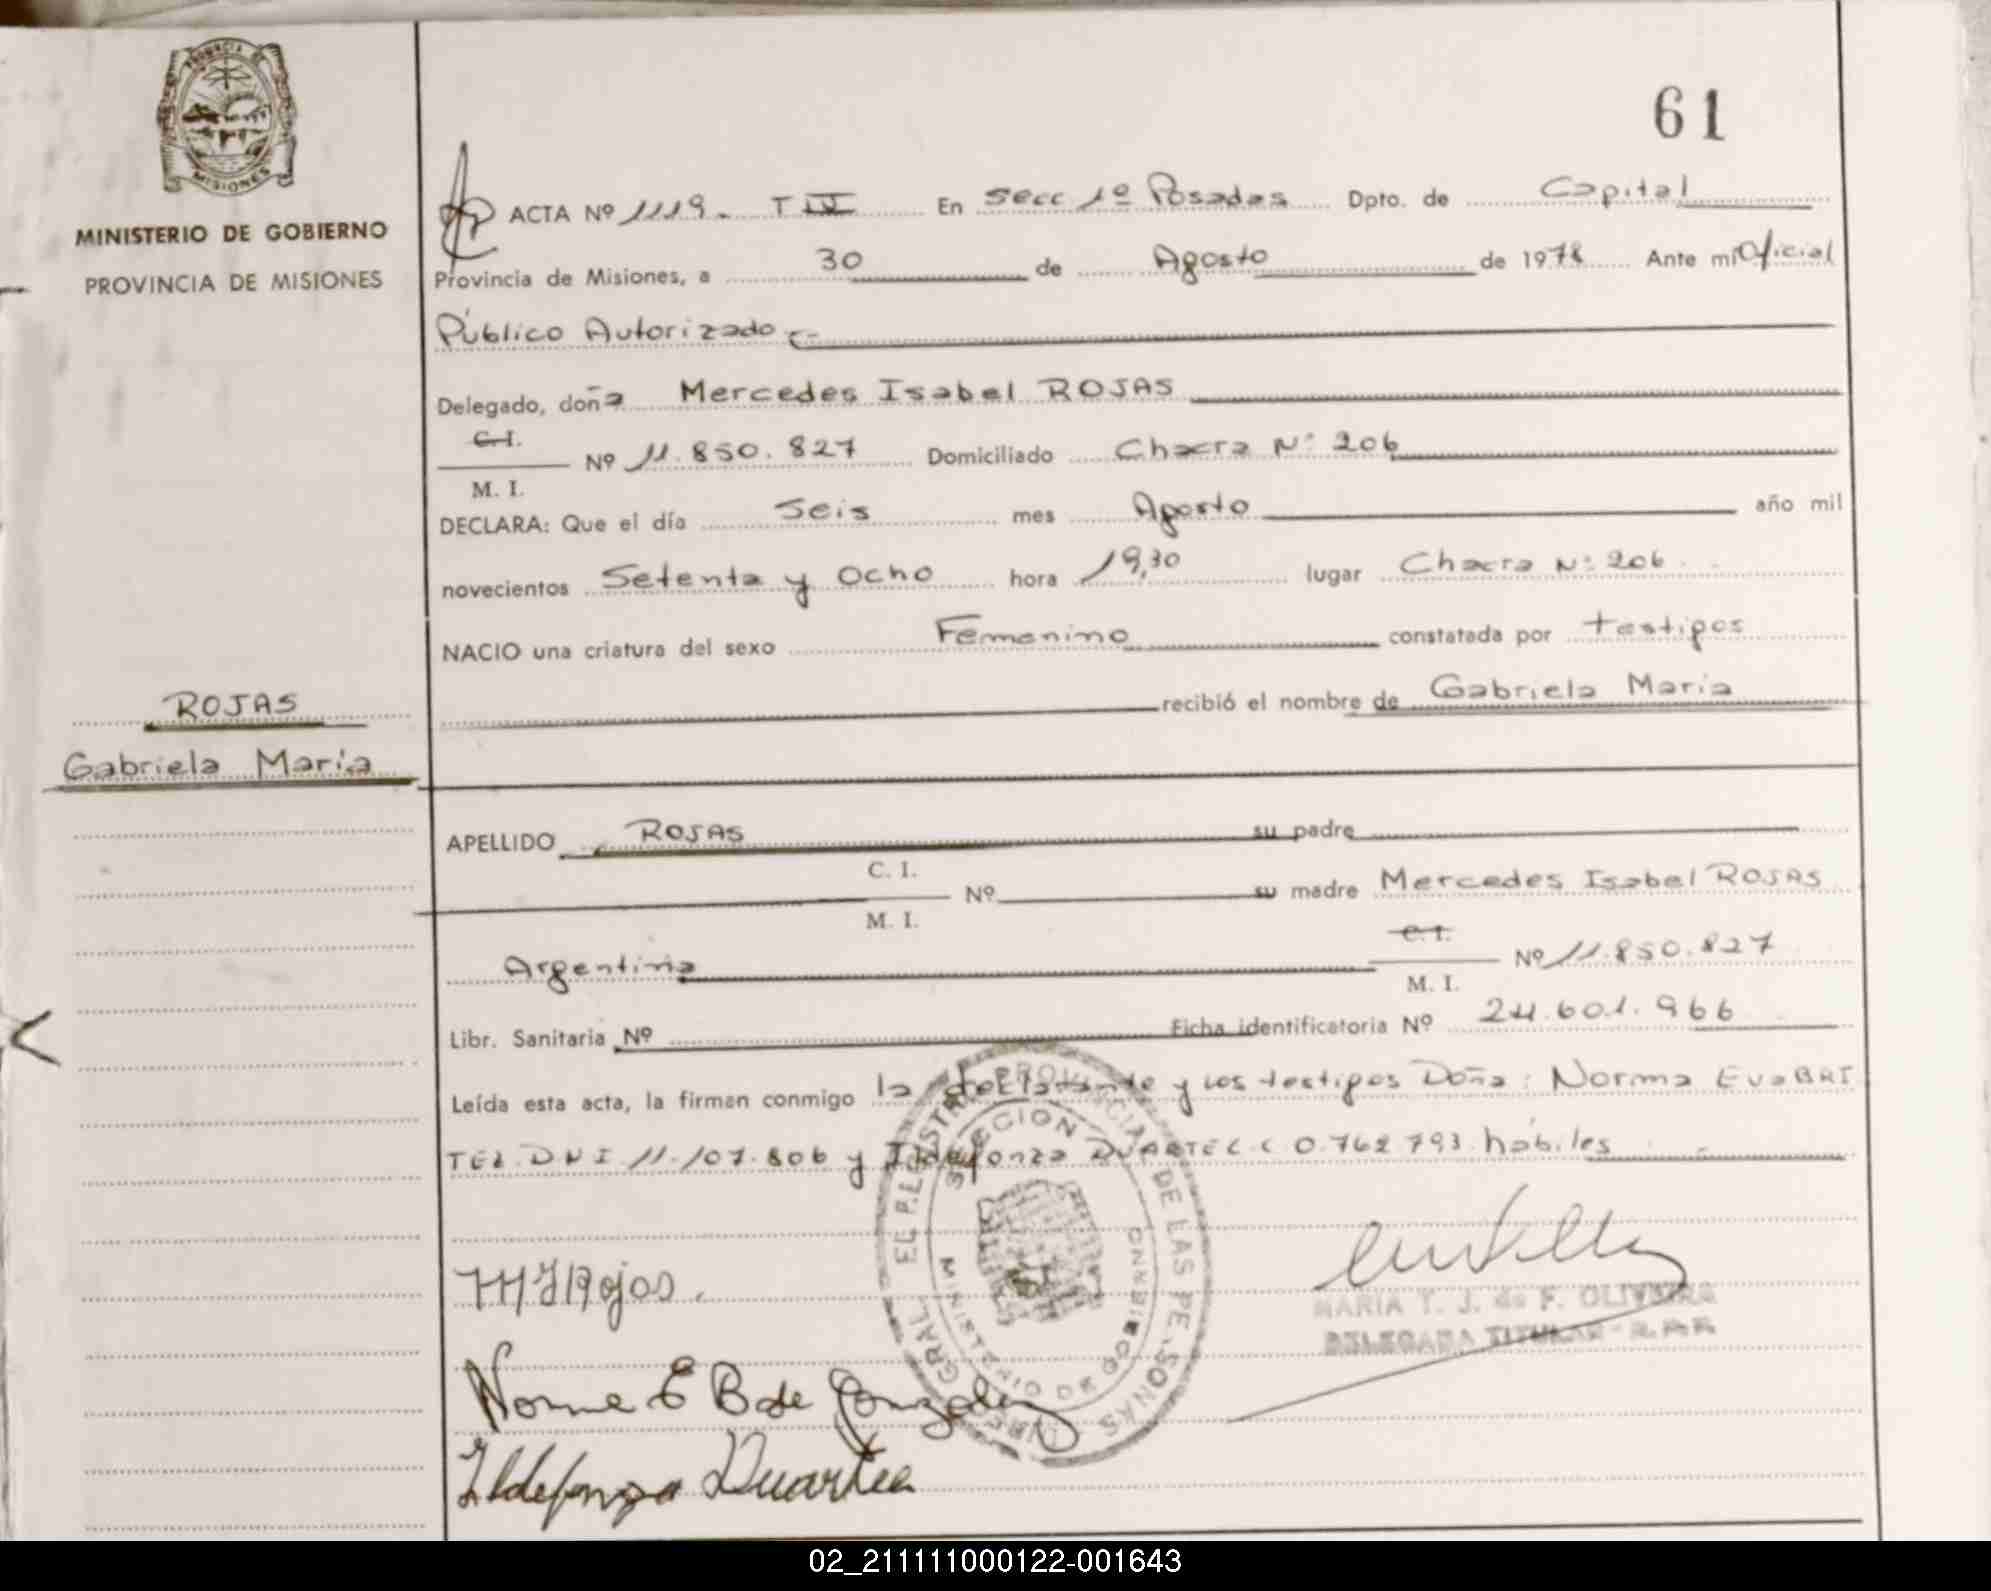 61
PROVINCIA DE
MISIONES
MINISTERIO DE GOBIERNO
PROVINCIA DE MISIONES
ACTA Nº 1119. T IV En Secc 1º Posadas Dpto. de Capital
Provincia de Misiones, a 30 de Agosto de 1978 Ante mi Oficial
Público Autorizado
Delegado, doña Mercedes Isabel ROJAS
C. I.
Nº 11.850.827 Domiciliado Chacra Nº 206
M. I.
DECLARA: Que el día Seis mes Agosto año mil
novecientos Setenta y Ocho hora 19,30 lugar Chacra Nº 206
NACIO una criatura del sexo Femenino constatada por testigos
recibió el nombre de Gabriela María
ROJAS
Gabriela María
APELLIDO ROJAS su padre
C. I.
Nº su madre Mercedes Isabel ROJAS
M. I.
C. I.
Argentina Nº 11.850.827
M. I.
Libr. Sanitaria Nº Ficha identificatoria Nº 24.601.966
Leída esta acta, la firman conmigo la declarante y los testigos Doña: Norma Eva BRI
TEZ. DNI 11.107.806 y Ildefonza DUARTE C. C 0.762.793. hábiles
M I Rojas.
MARIA T. J. de F. OLIVEIRA
DELEGADA TITULAR
Norma E B de Gonzalez
Ildefonza Duarte
DE LAS PERSONAS
SECCION
MINISTERIO DE GOBIERNO
02_211111000122-001643